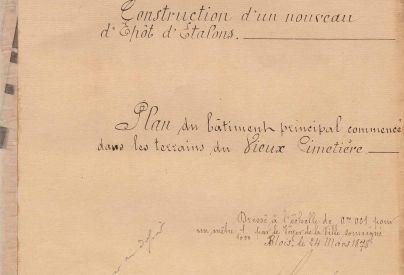 Construction d'un nouveau
d'Epôt d'Etalons.
Plan du bâtiment principal commencé
dans les terrains du Vieux Cimetière
Dressé à l'échelle de 0m 001 pour
un mètre par le Voyer de la Ville soussigné
Blois, le 24 Mars 1878